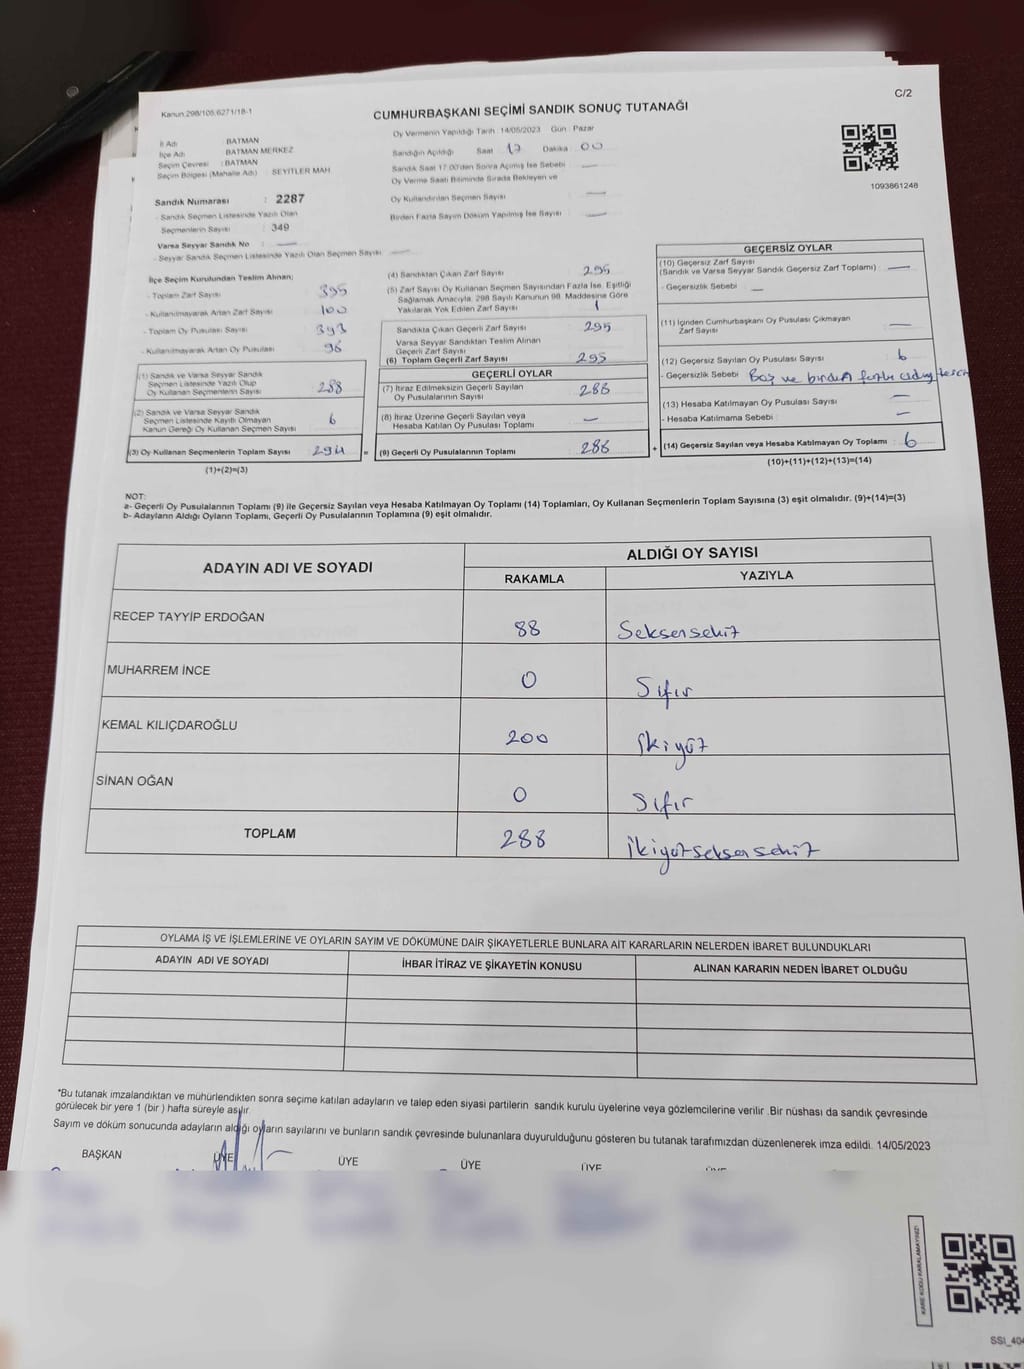 C/2
Kanun:298/105;6271/18-1
CUMHURBAŞKANI SEÇİMİ SANDIK SONUÇ TUTANAĞI
İl Adı : BATMAN
İlçe Adı : BATMAN MERKEZ
Seçim Çevresi : BATMAN
Seçim Bölgesi (Mahalle Adı) : SEYİTLER MAH.
Oy Vermenin Yapıldığı Tarih :14/05/2023 Gün : Pazar
Sandığın Açıldığı Saat 17 Dakika 00
Sandık Saat 17:00'den Sonra Açımış İse Sebebi —
Oy Verme Saati Bitiminde Sırada Bekleyen ve
Oy Kullandırılan Seçmen Sayısı —
Birden Fazla Sayım Döküm Yapılmış İse Sayısı —
1093861248
Sandık Numarası : 2287
- Sandık Seçmen Listesinde Yazılı Olan
Seçmenlerin Sayısı : 349
Varsa Seyyar Sandık No : —
- Seyyar Sandık Seçmen Listesinde Yazılı Olan Seçmen Sayısı —
İlçe Seçim Kurulundan Teslim Alınan;
- Toplam Zarf Sayısı 395
- Kullanılmayarak Artan Zarf Sayısı 100
- Toplam Oy Pusulası Sayısı 393
- Kullanılmayarak Artan Oy Pusulası 96
(1) Sandık ve Varsa Seyyar Sandık
Seçmen Listesinde Yazılı Olup
Oy Kullanan Seçmenlerin Sayısı 288
(2) Sandık ve Varsa Seyyar Sandık
Seçmen Listesinde Kayıtlı Olmayan
Kanun Gereği Oy Kullanan Seçmen Sayısı 6
(3) Oy Kullanan Seçmenlerin Toplam Sayısı 294 =
(1)+(2)=(3)
(4) Sandıktan Çıkan Zarf Sayısı 295
(5) Zarf Sayısı Oy Kullanan Seçmen Sayısından Fazla İse, Eşitliği
Sağlamak Amacıyla, 298 Sayılı Kanunun 98. Maddesine Göre
Yakılarak Yok Edilen Zarf Sayısı 1
Sandıkta Çıkan Geçerli Zarf Sayısı 295
Varsa Seyyar Sandıktan Teslim Alınan
Geçerli Zarf Sayısı
(6) Toplam Geçerli Zarf Sayısı 295
GEÇERLİ OYLAR
(7) İtiraz Edilmeksizin Geçerli Sayılan
Oy Pusulalarının Sayısı 288
(8) İtiraz Üzerine Geçerli Sayılan veya
Hesaba Katılan Oy Pusulası Toplamı —
(9) Geçerli Oy Pusulalarının Toplamı 288 +
GEÇERSİZ OYLAR
(10) Geçersiz Zarf Sayısı
(Sandık ve Varsa Seyyar Sandık Geçersiz Zarf Toplamı) : —
- Geçersizlik Sebebi : —
(11) İçinden Cumhurbaşkanı Oy Pusulası Çıkmayan
Zarf Sayısı —
(12) Geçersiz Sayılan Oy Pusulası Sayısı 6
- Geçersizlik Sebebi : Boş ve birden fazla aday
(13) Hesaba Katılmayan Oy Pusulası Sayısı —
- Hesaba Katılmama Sebebi : —
(14) Geçersiz Sayılan veya Hesaba Katılmayan Oy Toplamı : 6
(10)+(11)+(12)+(13)=(14)
NOT:
a- Geçerli Oy Pusulalarının Toplamı (9) ile Geçersiz Sayılan veya Hesaba Katılmayan Oy Toplamı (14) Toplamları, Oy Kullanan Seçmenlerin Toplam Sayısına (3) eşit olmalıdır. (9)+(14)=(3)
b- Adayların Aldığı Oyların Toplamı, Geçerli Oy Pusulalarının Toplamına (9) eşit olmalıdır.
ADAYIN ADI VE SOYADI
ALDIĞI OY SAYISI
RAKAMLA YAZIYLA
RECEP TAYYİP ERDOĞAN 88 Seksensekiz
MUHARREM İNCE 0 Sıfır
KEMAL KILIÇDAROĞLU 200 ikiyüz
SİNAN OĞAN 0 Sıfır
TOPLAM 288 ikiyüzseksensekiz
OYLAMA İŞ VE İŞLEMLERİNE VE OYLARIN SAYIM VE DÖKÜMÜNE DAİR ŞİKAYETLERLE BUNLARA AİT KARARLARIN NELERDEN İBARET BULUNDUKLARI
ADAYIN ADI VE SOYADI İHBAR İTİRAZ VE ŞİKAYETİN KONUSU ALINAN KARARIN NEDEN İBARET OLDUĞU
*Bu tutanak imzalandıktan ve mühürlendikten sonra seçime katılan adayların ve talep eden siyasi partilerin sandık kurulu üyelerine veya gözlemcilerine verilir .Bir nüshası da sandık çevresinde
görülecek bir yere 1 (bir ) hafta süreyle asılır.
Sayım ve döküm sonucunda adayların aldığı oyların sayılarını ve bunların sandık çevresinde bulunanlara duyurulduğunu gösteren bu tutanak tarafımızdan düzenlenerek imza edildi. 14/05/2023
BAŞKAN ÜYE ÜYE ÜYE ÜYE
KARE KODU KARALAMAYINIZ!